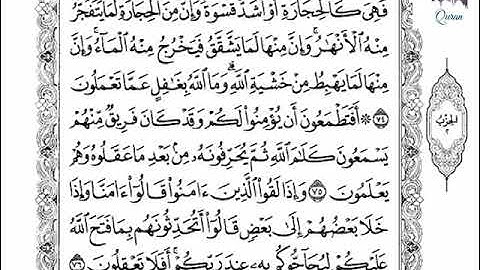 فَهِىَ كَٱلْحِجَارَةِ أَوْ أَشَدُّ قَسْوَةً وَإِنَّ مِنَ ٱلْحِجَارَةِ لَمَا يَتَفَجَّرُ
مِنْهُ ٱلْأَنْهَٰرُ وَإِنَّ مِنْهَا لَمَا يَشَّقَّقُ فَيَخْرُجُ مِنْهُ ٱلْمَآءُ وَإِنَّ
مِنْهَا لَمَا يَهْبِطُ مِنْ خَشْيَةِ ٱللَّهِ وَمَا ٱللَّهُ بِغَٰفِلٍ عَمَّا تَعْمَلُونَ
٧٤ ۞ أَفَتَطْمَعُونَ أَن يُؤْمِنُوا۟ لَكُمْ وَقَدْ كَانَ فَرِيقٌ مِّنْهُمْ
يَسْمَعُونَ كَلَٰمَ ٱللَّهِ ثُمَّ يُحَرِّفُونَهُۥ مِنۢ بَعْدِ مَا عَقَلُوهُ وَهُمْ
يَعْلَمُونَ ٧٥ وَإِذَا لَقُوا۟ ٱلَّذِينَ ءَامَنُوا۟ قَالُوٓا۟ ءَامَنَّا وَإِذَا
خَلَا بَعْضُهُمْ إِلَىٰ بَعْضٍ قَالُوٓا۟ أَتُحَدِّثُونَهُم بِمَا فَتَحَ ٱللَّهُ
عَلَيْكُمْ لِيُحَآجُّوكُم بِهِۦ عِندَ رَبِّكُمْ أَفَلَا تَعْقِلُونَ ٧٦
Quran
الحزب
٢